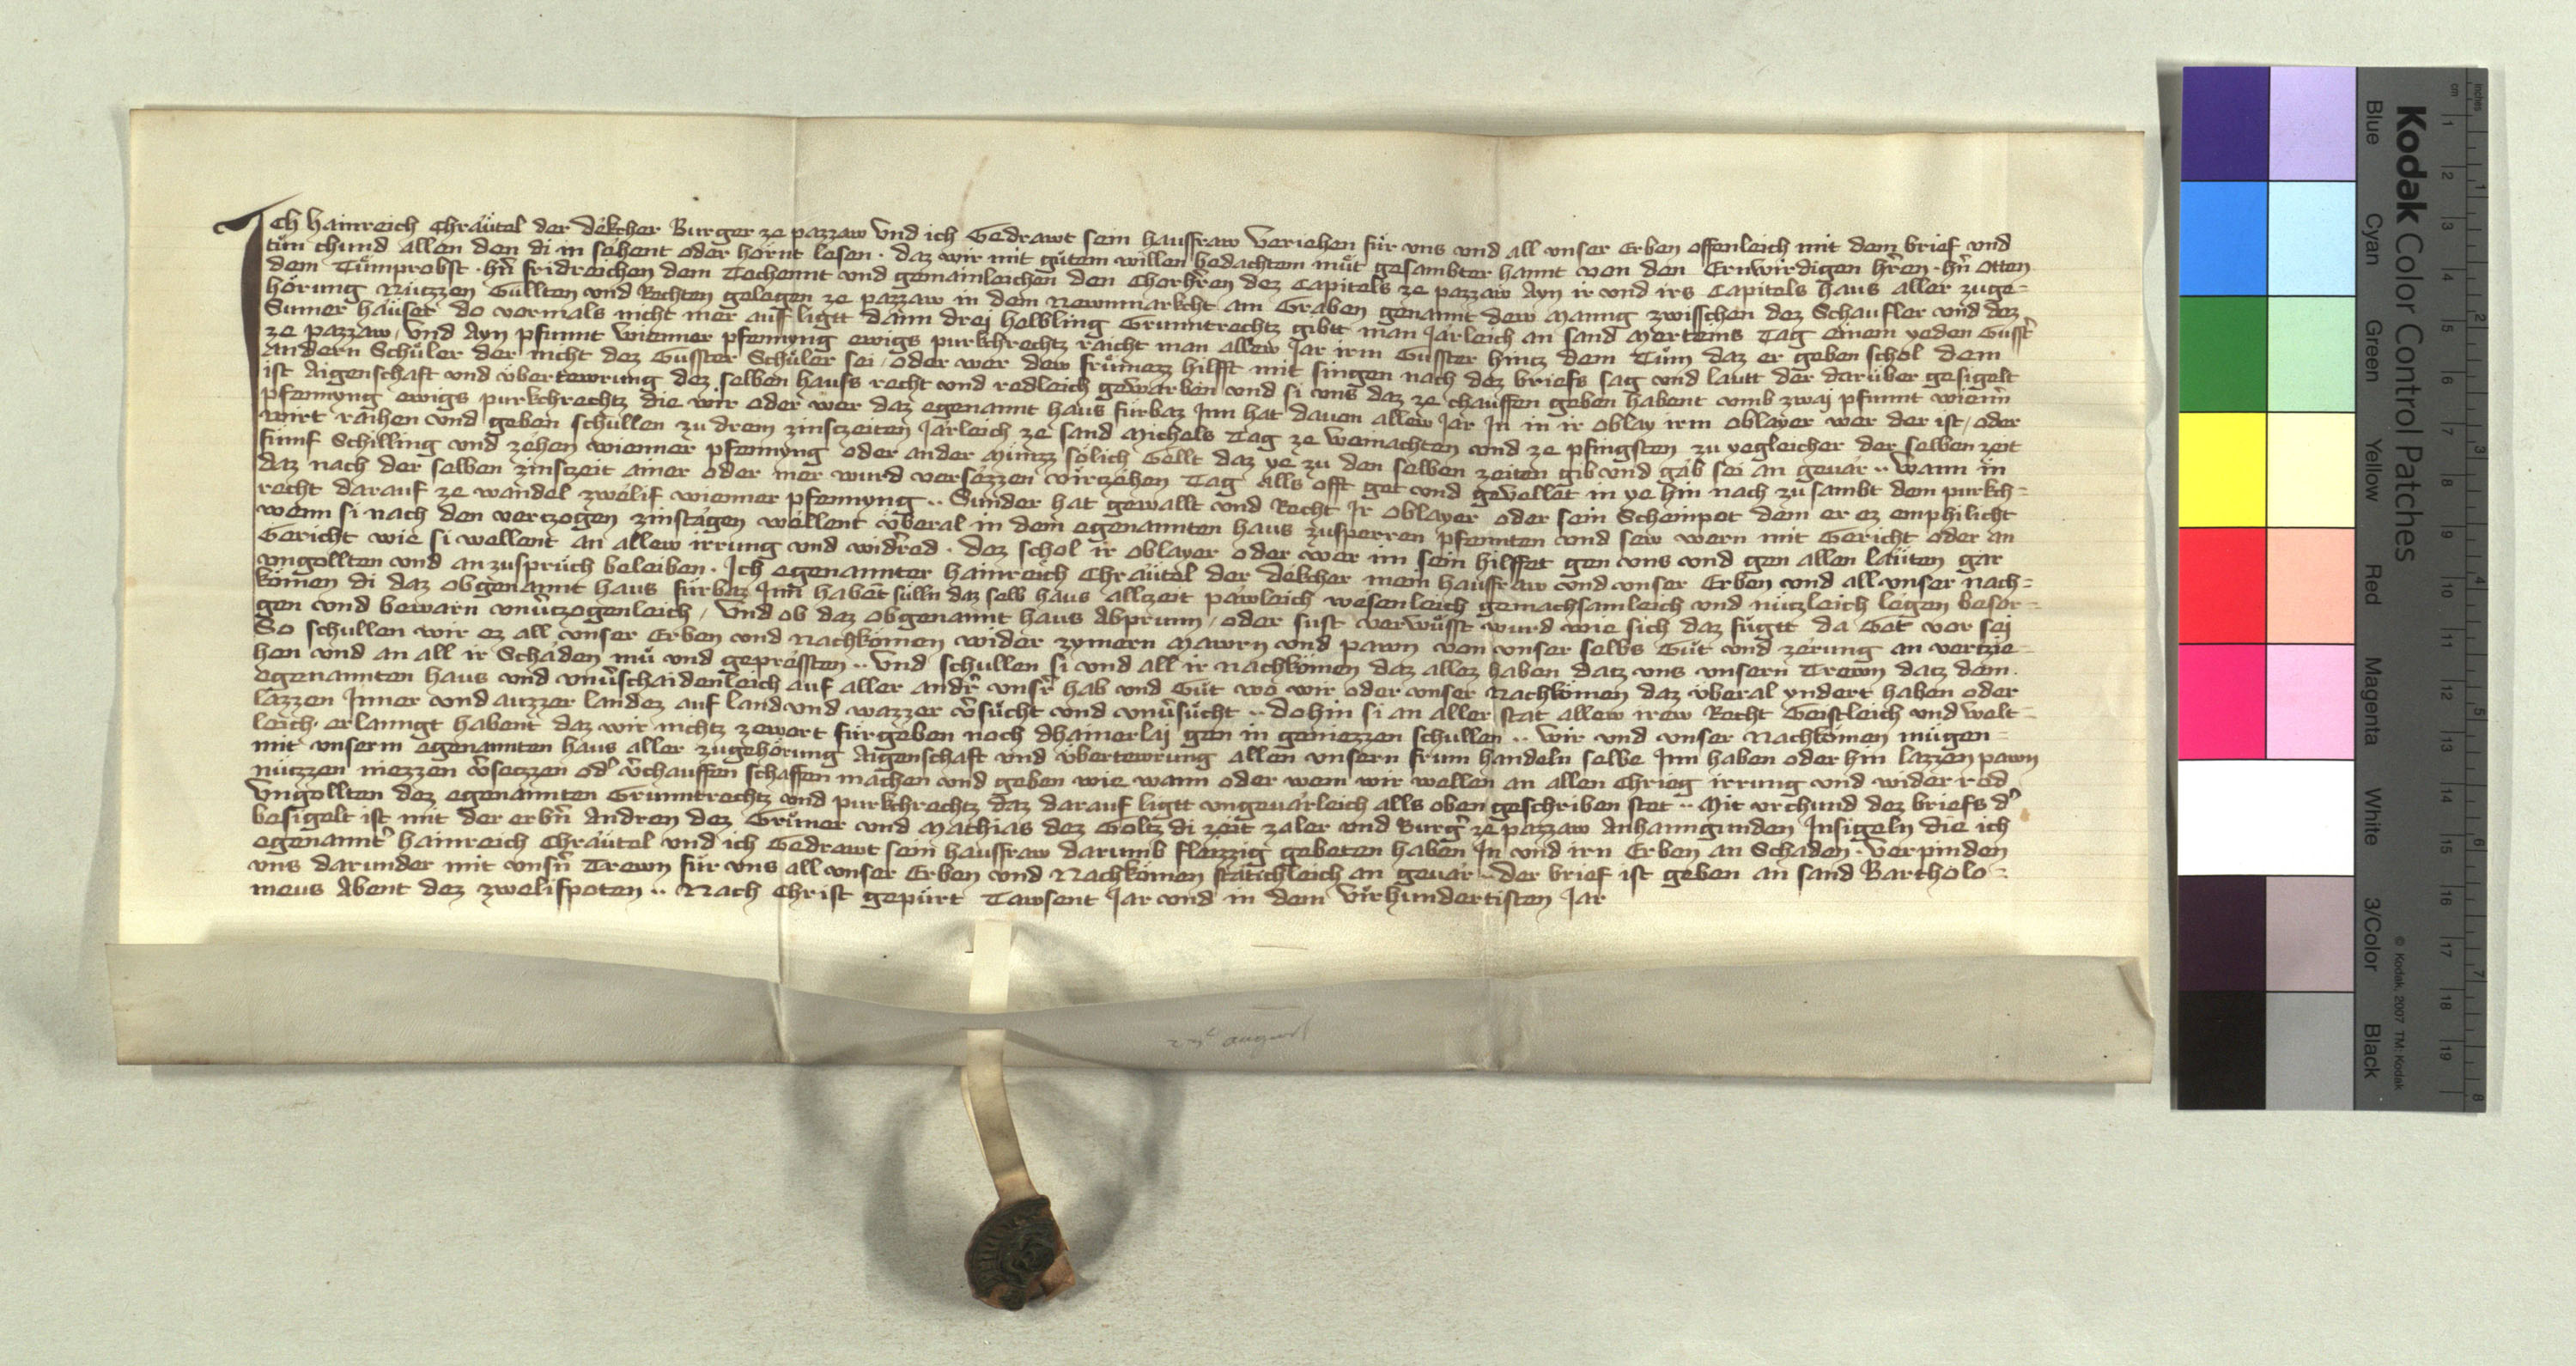 Ich Hainreich Chräutel der dekcher Burger ze pazzaw Vnd ich Gedrawt sein hausfraw Veriehen für vns vnd all vnser Erben offenleich mit dem brief vnd
tün chund allen den di in sehent oder hörnt lesen · daz wir mit gütem willen bedachtem müt gesambter hannt von den Erwirdigen hr̄en · hn̄ Otten
dem Tümprobst · hn̄ fridreichen dem Techennt vnd gemainleichen den Chorhr̄en dez Capitels ze pazzaw Ayn ir vnd irs Capitels haus aller zuge-
hörung Nützzen Güllten vnd Rechten gelegen ze pazzaw in dem Newnmarkcht am Graben genannt dew Manng zwisschen dez Schaufler vnd dez
Sumer häuser do vormals nicht mer auf ligtt dann drej helbling Grunntrechtz gibtt man Järleich an sand Merteins Tag einem yeden Gusst̄
ze pazzaw / Vnd Ayn pfunnt wienner pfennyng ewigs purkchrechtz raicht man allew Jar irm Gusster hintz dem Tüm daz er geben schol dem
andern Schüler der nicht dez Gusster Schüler sei / oder wer dew frümezz hilfft mit singen nach dez briefs sag vnd lautt der darüber gesigelt
ist Aigenschaft vnd übertewrung dez selben hauss recht vnd redleich gewarben vnd si vns daz ze chauffen geben habent vmb zwaj pfunnt wienn̄
pfennyng ewigs purkchrechtz die wir oder wer daz egenannt haus fürbaz Inn hat dauon allew Jar In in ir oblay irm oblayer wer der ist / oder
wirt raihen vnd geben schüllen zu drein zinszeiten Järleich ze sand Michels Tag ze weinachten vnd ze pfingsten zu yegleicher der selben zeit
fünf Schilling vnd zehen wienner pfennyng oder ander Münzz sölich Gellt daz ye zu den selben zeiten gib vnd gäb sei an geuär ·· Wann in
daz nach der selben zinszeit ainer oder mer wurd versezzen virtzehen Tag Alls offt get vnd geuellet in ye hin nach zu sambt dem purkch-
recht darauf ze wandel zwelif wienner pfennyng ·· Sunder hat gewallt vnd Recht Ir oblayer oder sein Scheinpot dem er ez emphilicht
wenn si nach den vertzogen zinstägen wellent überal in dem egenannten haus zusperren pfennten vnd sew wern mit Gericht oder an
Gericht wie si wellent an allew irrung vnd wid̄red · dez schol ir oblayer oder wer im sein hilffet gen vns vnd gen allen läuten gar
vngollten vnd an zuspruch beleiben · Ich egenannter Hainreich Chräutel der dekcher mein hausfraw vnd vnser Erben vnd all vnser nach-
kömen di daz obgenannt haus fürbaz Inn habēt sülln daz selb haus allzeit päwleich wesenleich gemachsamleich vnd nützleich legen besor-
gen vnd bewarn vnūtzogenleich / Vnd ob daz obgenannt haus Abprunn / oder sust verwüsst wurd wie sich daz fügtt da Got vor sej
So schullen wir ez all vnser Erben vnd Nachkömen wider zymern Mawrn vnd pawn von vnser selbs Güt vnd zerung an vertzie-
hen vnd an all ir Schäden mü vnd geprессten ·· Vnd schullen si vnd all ir nachkömen daz allez haben datz vns vnsern Trewn datz dem
egenannten haus vnd vnūschaidenleich auf aller andr̄ vnsr̄ hab vnd Güt wo wir oder vnser Nachkömen daz überal yndert haben oder
lazzen Inner vnd auzzer Landez auf land vnd wazzer v̄sücht vnd vnv̄sücht ·· dohin si an aller stat allew irew Recht Geistleich vnd welt-
leich erlanngt habent daz wir nichtz zewert fürgeben noch dhainerlaj gen in geniezzen schullen ·· Wir vnd vnser Nachkömen mügen
mit vnserm egenannten haus aller zugehörung Aigenschaft vnd übertewrung allen vnsern frum handeln selbe Inn haben oder hin lazzen pawn
nützzen niezzen v̄setzzen od̄ v̄chauffen schaffen machen vnd geben wie wann oder wem wir wellen an allen Chrieg irrung vnd wider red
Vngollten dez egenannten Grunntrechtz vnd purkchrechtz daz darauf ligtt vngeuärleich alls oben geschriben stet ·· Mit vrchund dez briefs d̄
besigelt ist mit der erbn̄ Andren dez Grümer vnd Mathias dez Goltz di zeit zaler vnd Burḡ ze pazzaw Anhanngunden Insigeln die ich
egenannt̄ Hainreich Chräutel vnd ich Gedrawt sein hausfraw darumb fleizzig gebeten haben In vnd irn Erben an Schaden · Verpinden
vns darunder mit vnsn̄ Trewn für vns all vnser Erben vnd Nachkömen stätichleich an geuär · der brief ist geben an sand Bartholo-
meus Abent dez zwelifpoten ·· Nach Christ gepürt Tawsent Jar vnd in dem virhundertisten Jar
23t august
Kodak Color Control Patches
© Kodak, 2007 TM: Kodak
Blue Cyan Green Yellow Red Magenta White 3/Color Black
inches 1 2 3 4 5 6 7 8
cm 1 2 3 4 5 6 7 8 9 10 11 12 13 14 15 16 17 18 19